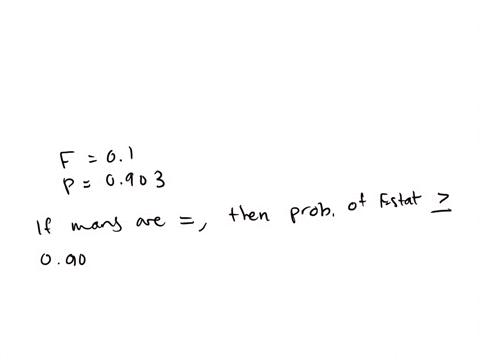 F = 0.1
P = 0.903
If mans are =, then prob. of Fstat ≥
0.90